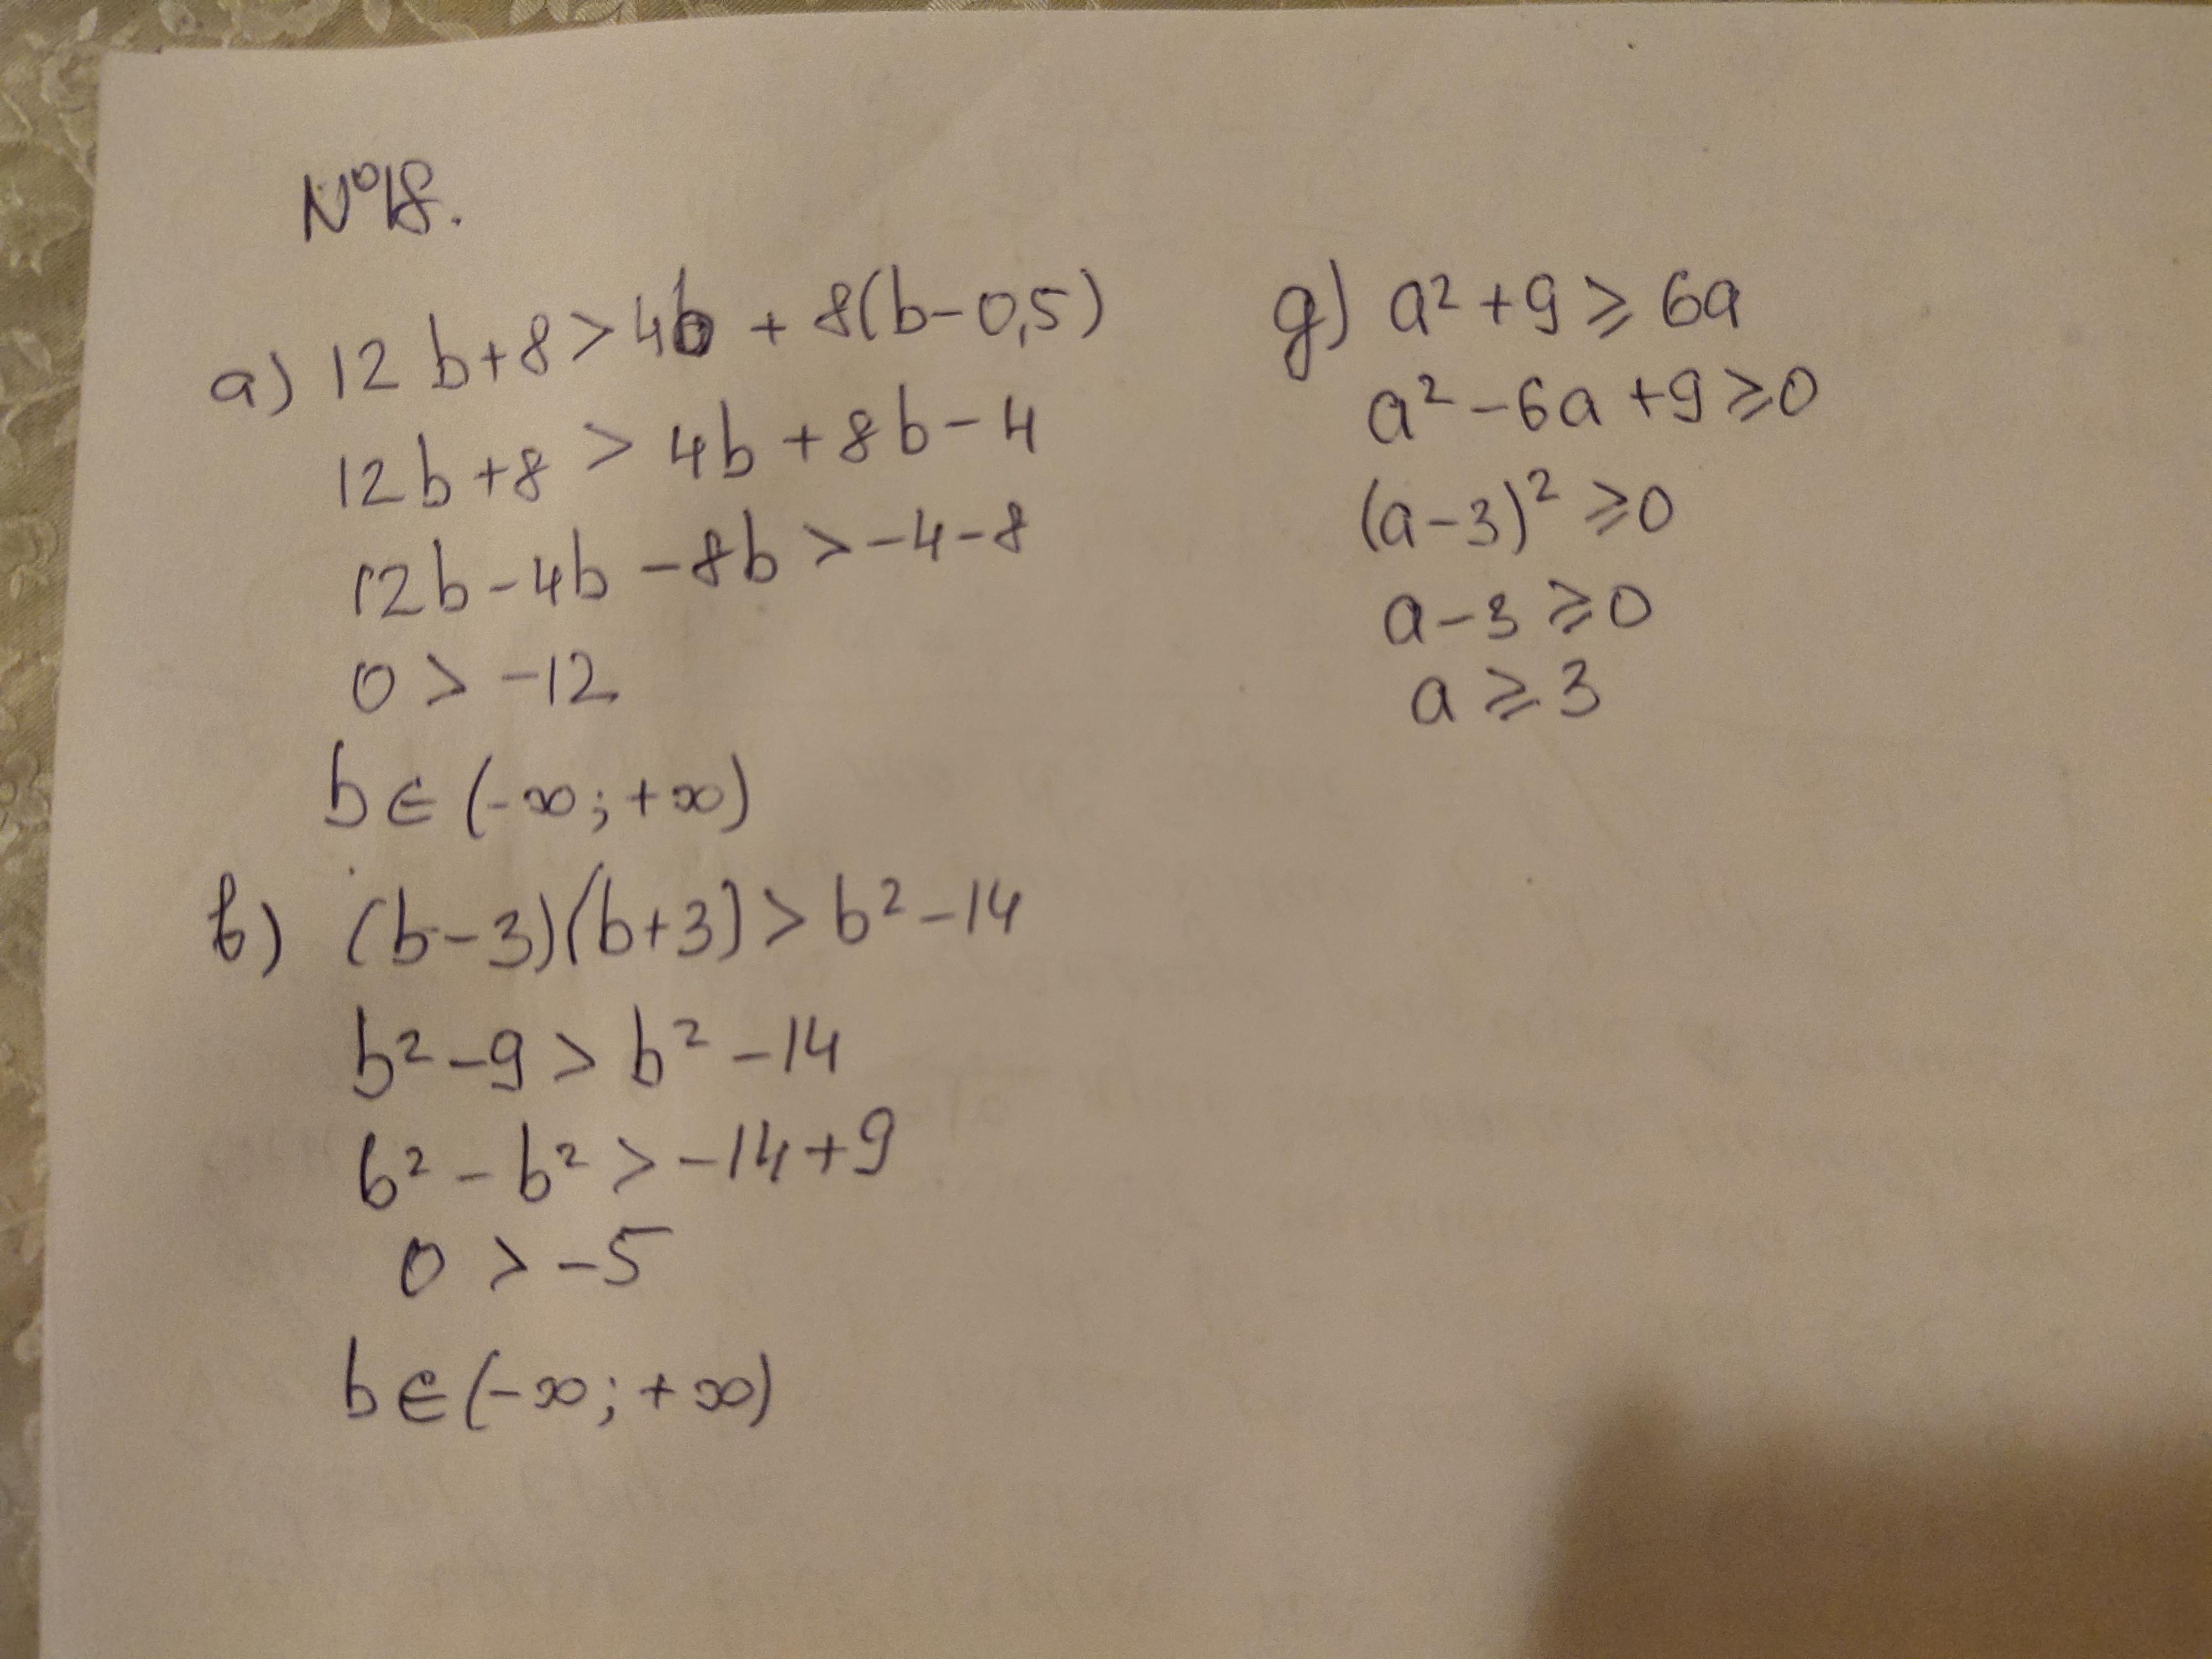 №18.
а) 12b+8>4b + 8(b-0,5)
12b+8 > 4b+8b-4
12b-4b-8b>-4-8
0 > -12
b∈(-∞;+∞)
в) (b-3)(b+3)>b²-14
b²-9>b²-14
b²-b²>-14+9
0 > -5
b∈(-∞;+∞)
д) a²+9⩾6a
a²-6a+9⩾0
(a-3)²⩾0
a-3⩾0
a⩾3